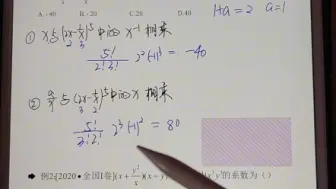 A. - 40 B. - 20 C. 20 D.40
1+a = 2 a=1
① x与(2x-1/x)⁵中的x⁻¹相乘
3 2
5!/(2!3!) 2²(-1)³ = -40
② a/x与(2x-1/x)⁵中的x相乘
3 2
5!/(3!2!) 2³(-1)² = 80
例2:[2020•全国I卷](x+y²/x)(x-y) x³y³的系数为()